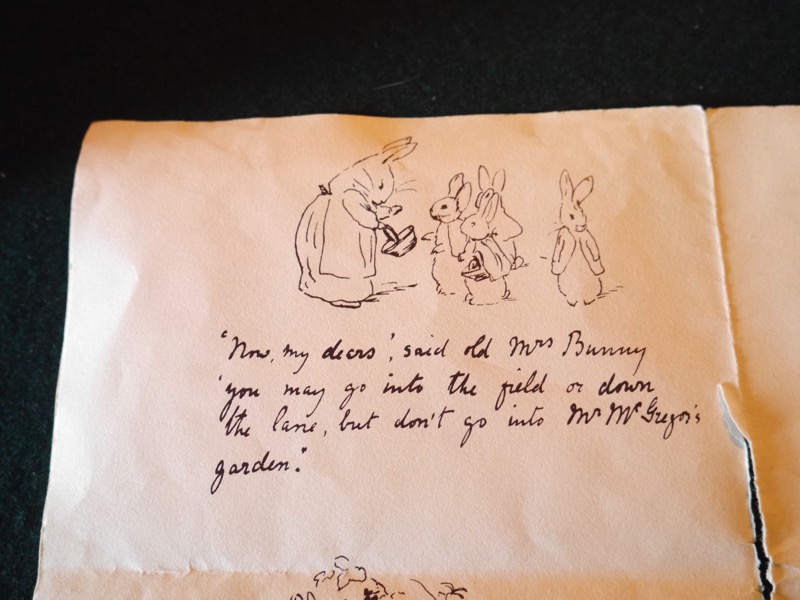 'Now, my dears', said old Mrs Bunny
'you may go into the field or down
the lane, but don't go into Mr McGregor's
garden."